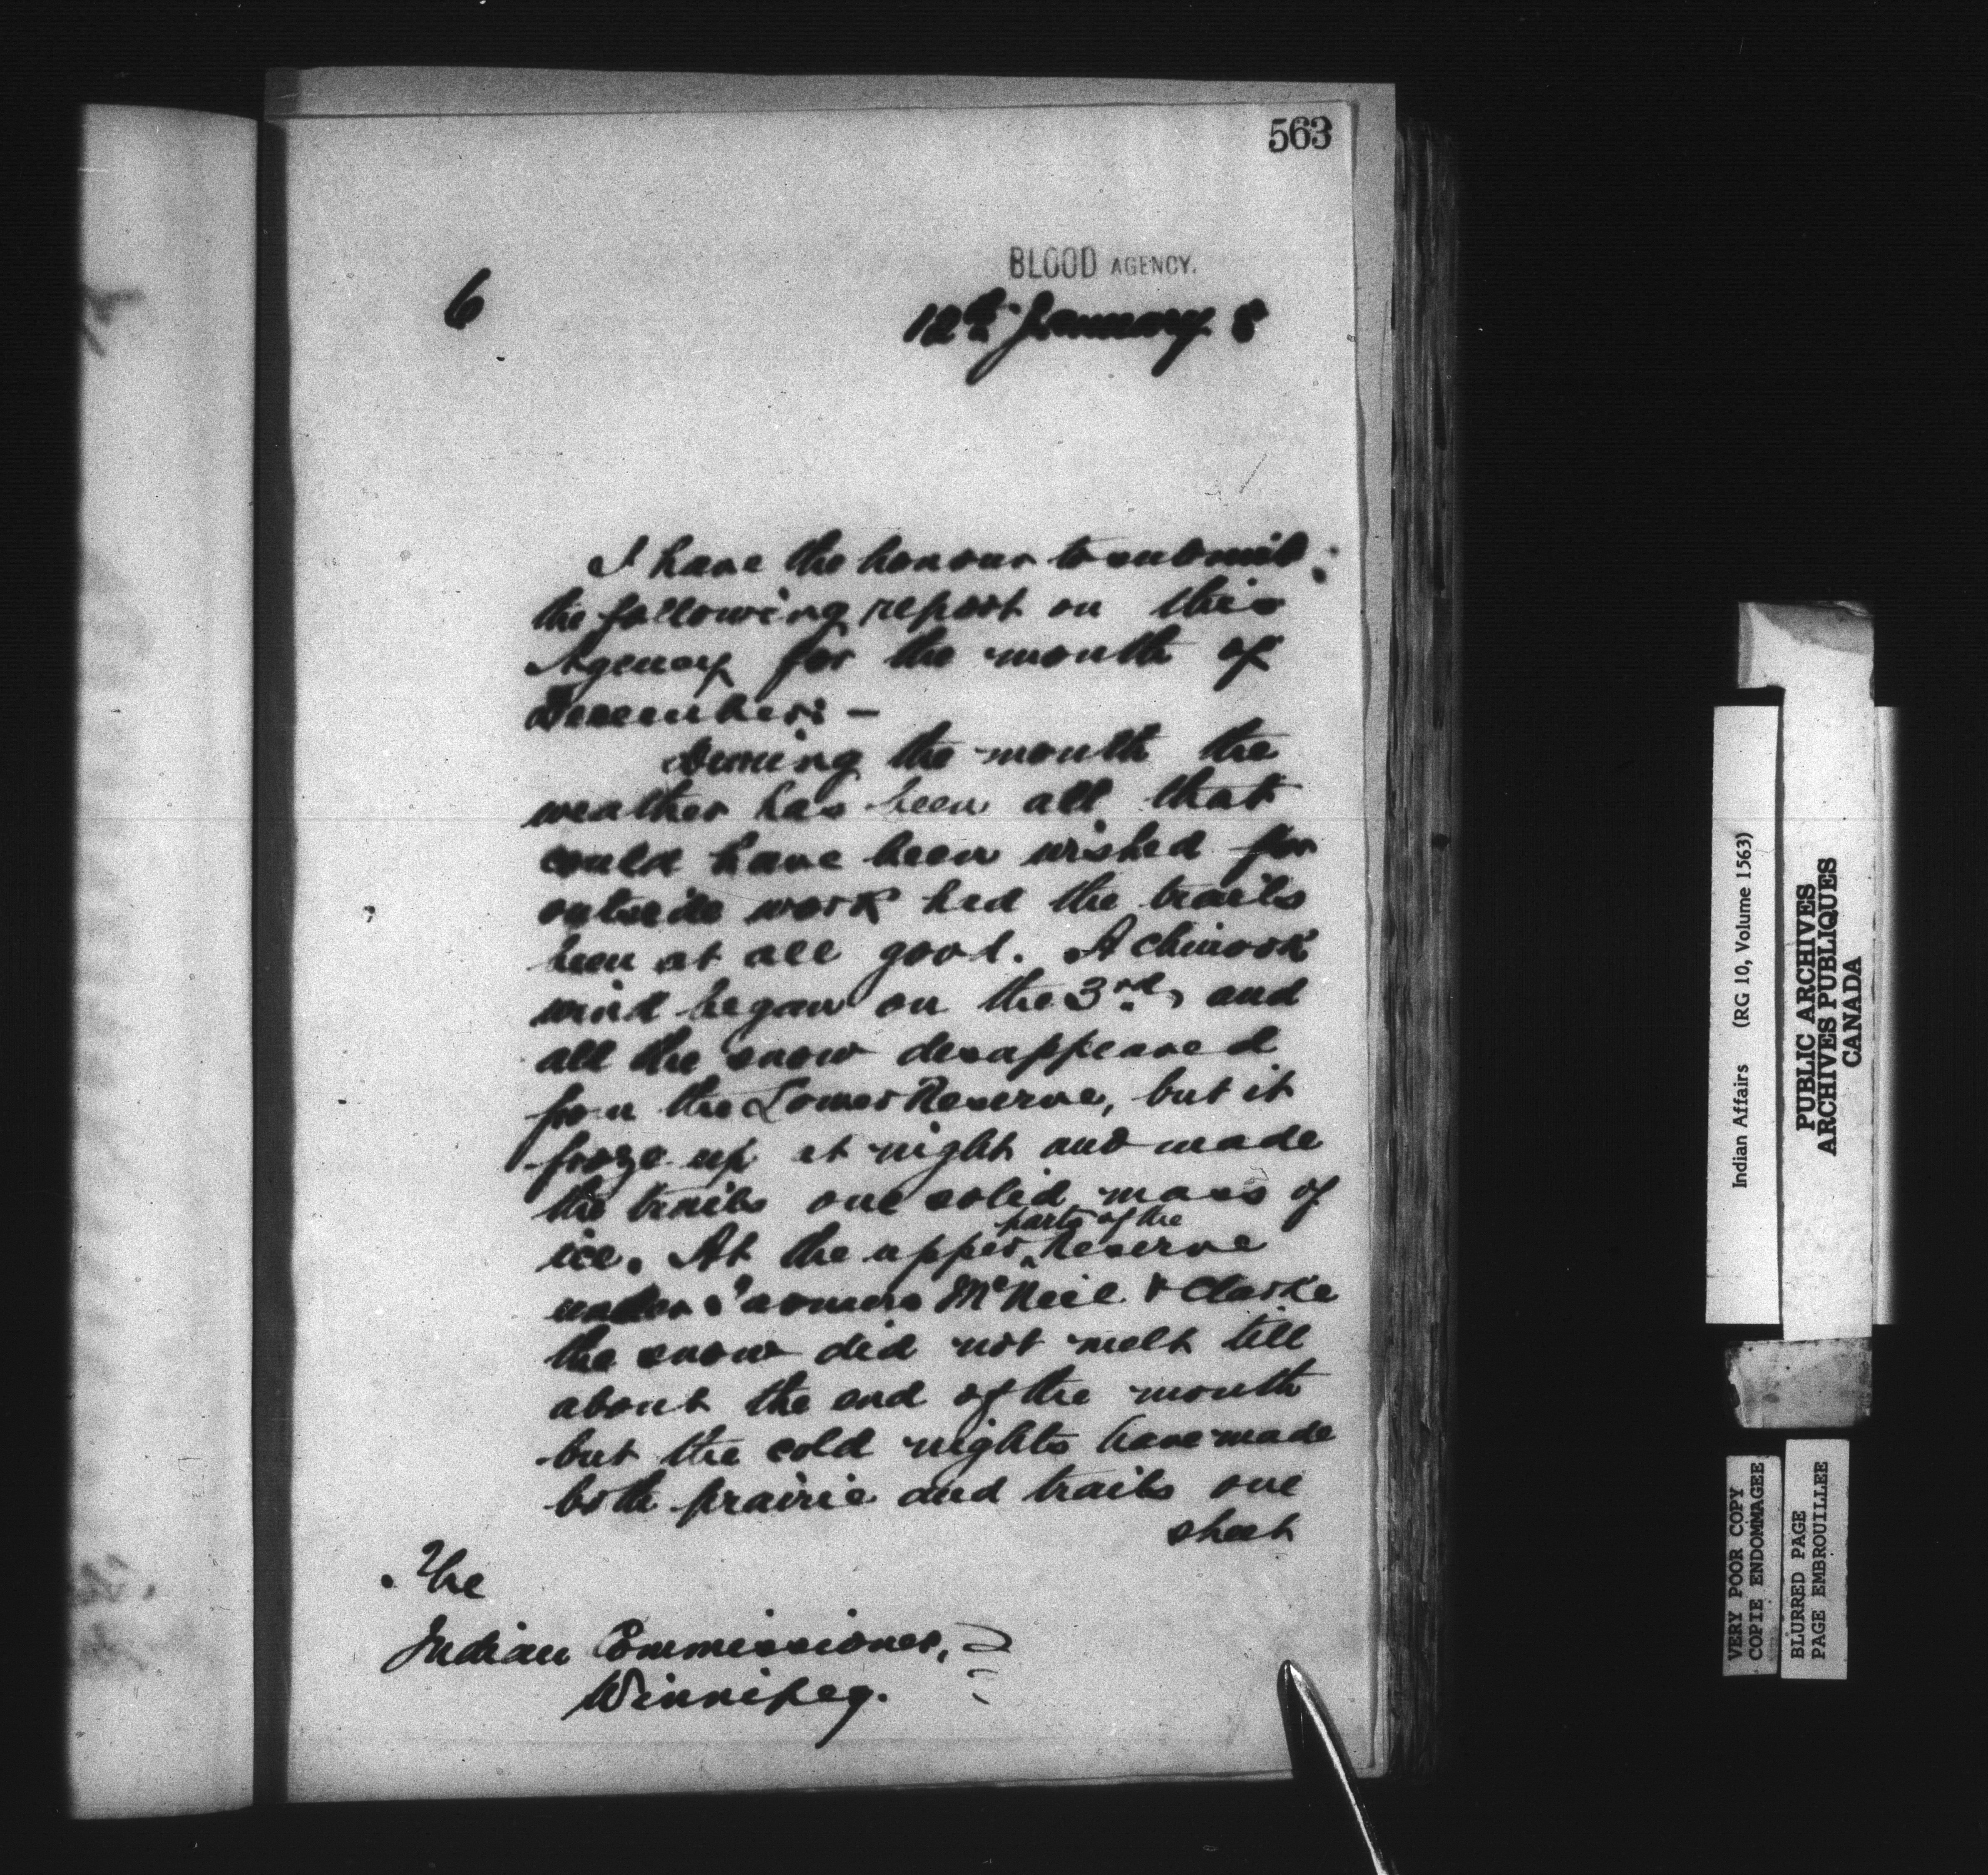 563
BLOOD AGENCY.
6
12th January 8
I have the honour to submit
the following report on this
Agency for the month of
December: -
During the month the
weather has been all that
could have been wished for
outside work had the trails
been at all good. A chinook
wind began on the 3rd, and
all the snow disappeared
from the Lower Reserve, but it
froze up at night and made
the trails one solid mass of
ice. At the upper parts of the Reserve
under Farmers McNeil & Clarke
the snow did not melt till
about the end of the month
but the cold nights have made
both prairie and trails one
sheet
The
Indian Commissioner,
Winnipeg.
Indian Affairs (RG 10, Volume 1563)
PUBLIC ARCHIVES
ARCHIVES PUBLIQUES
CANADA
VERY POOR COPY
COPIE ENDOMMAGEE
BLURRED PAGE
PAGE EMBROUILLEE